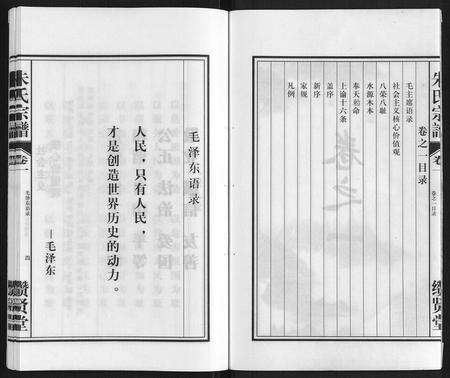 朱氏宗譜
卷一
卷之一目录
繢贤堂
卷之一目录
毛主席语录
社会主义核心价值观
八荣八耻
水源木本
奉天勅命
上谕十六条
盖序
新序
家规
凡例
毛泽东语录
人民，只有人民，
才是创造世界历史的动力。
—毛泽东
朱氏宗譜
卷一
毛泽东语录
四
繢贤堂